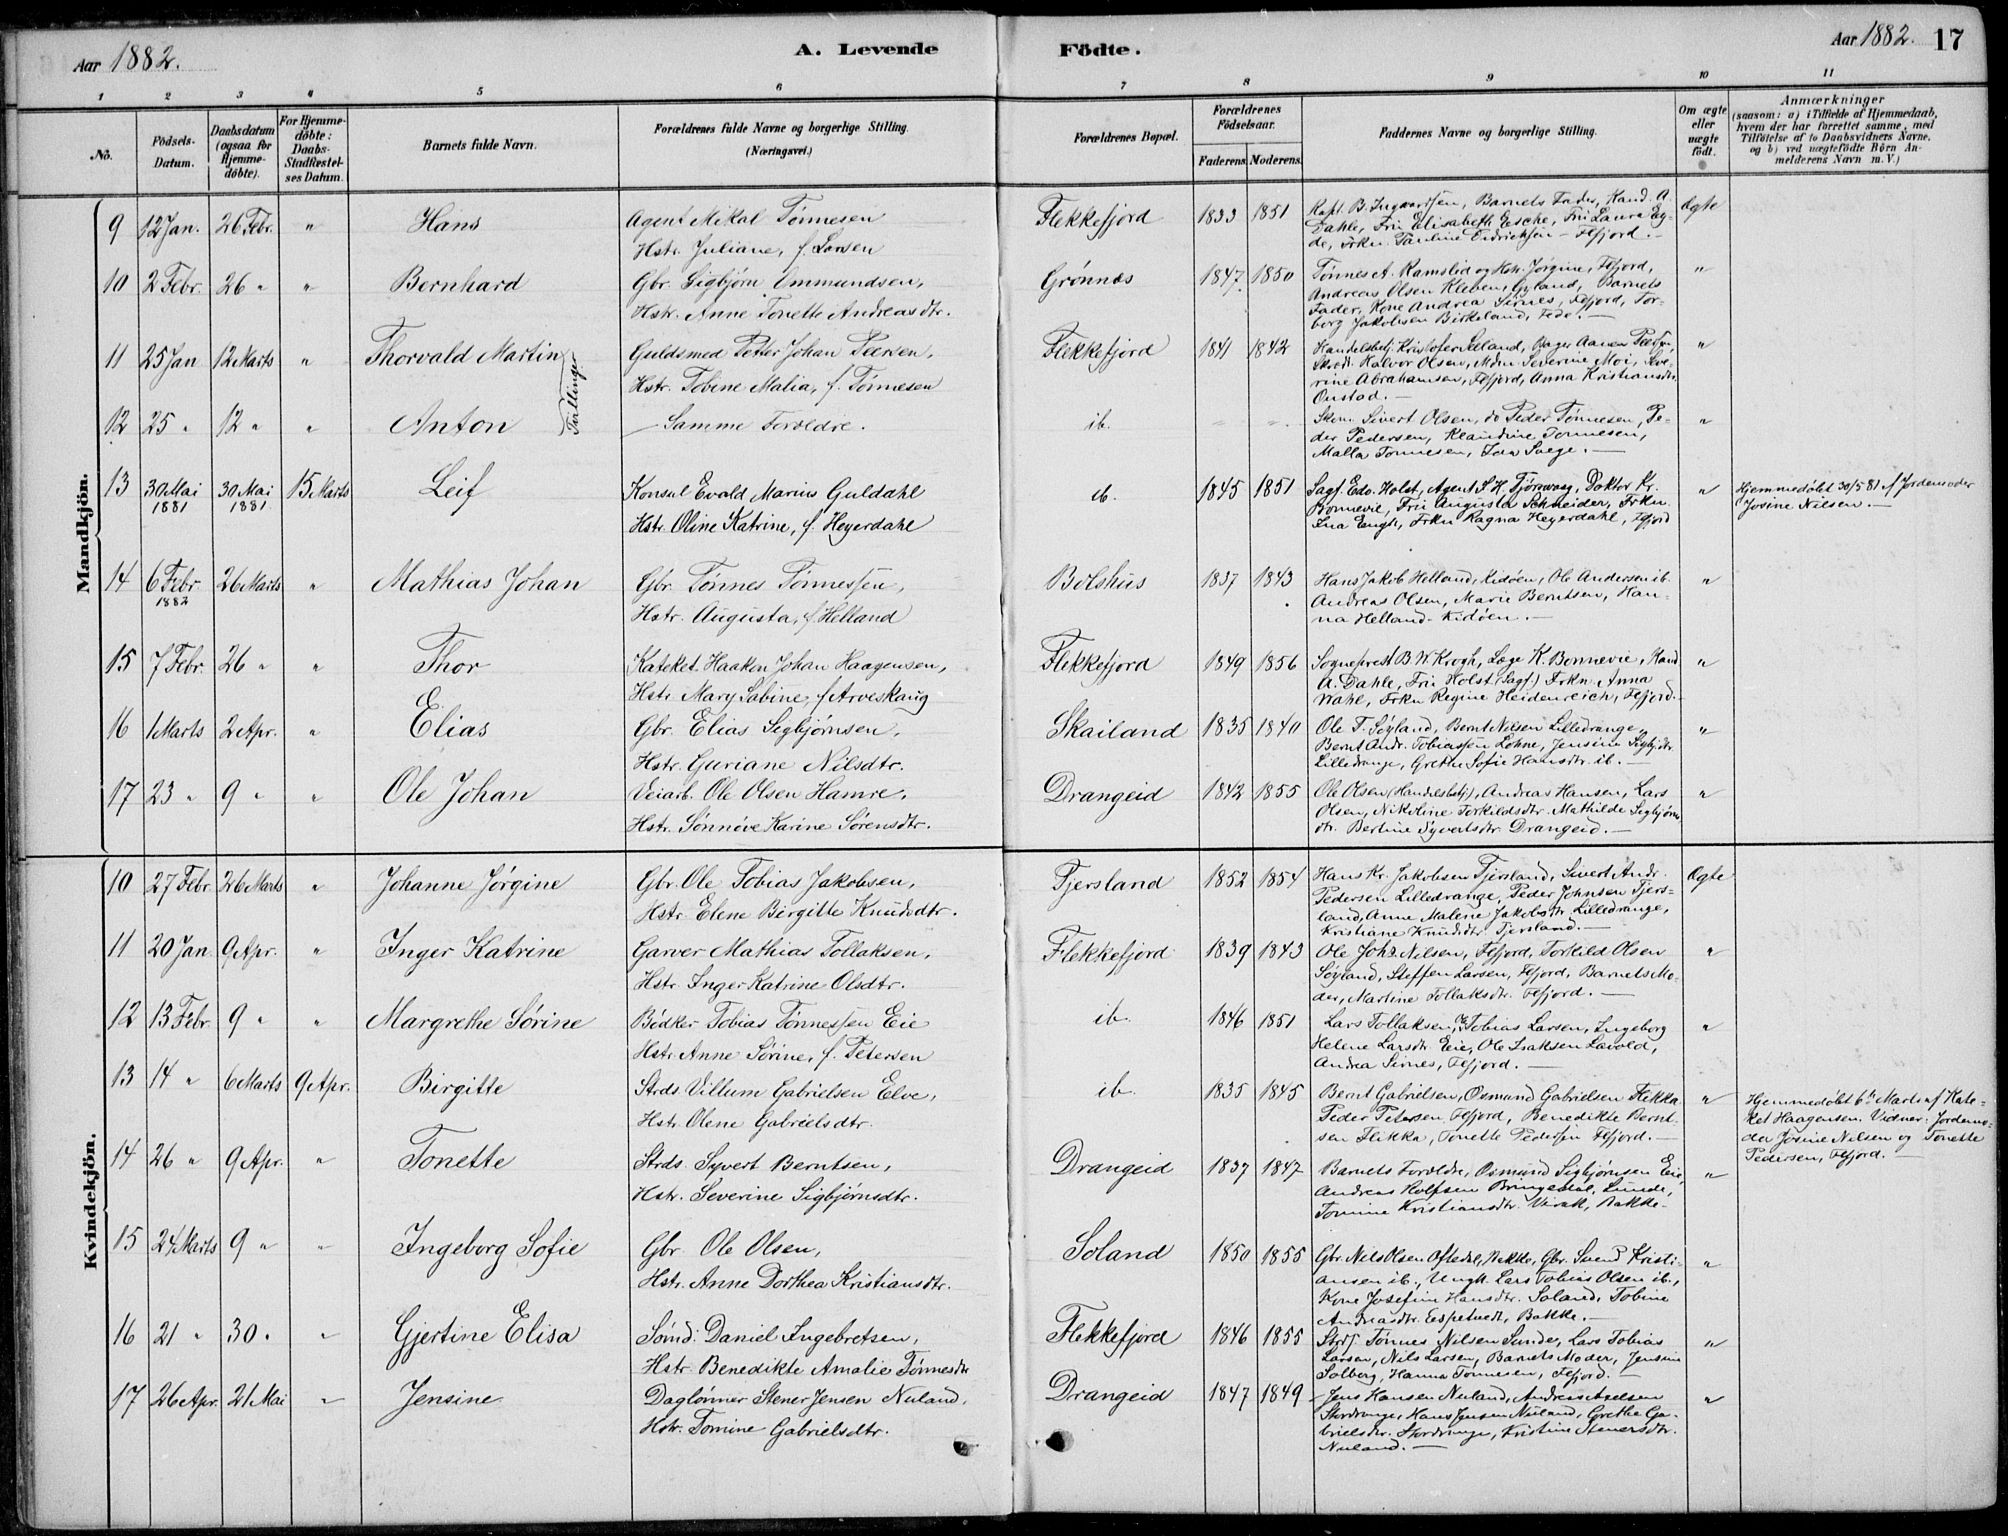 Aar 1882. A. Levende Födte. Aar 1882. 17
1 2 3 4 5 6 7 8 9 10 11
No.
Födsels-Datum.
Daabsdatum (ogsaa for Hjemme-döbte).
For Hjemme-döbte: Daabs-Stadfæstel-ses Datum.
Barnets fulde Navn.
Forældrenes fulde Navne og borgerlige Stilling.
(Næringsvei.)
Forældrenes Bopæl.
Forældrenes Födselsaar.
Faderens. Moderens.
Faddernes Navne og borgerlige Stilling.
Om ægte eller uægte födt.
Anmærkninger
(saasom: a) i Tilfælde af Hjemmedaab,
hvem der har forrettet samme, med
Tilföielse af to Daabsvidners Navne,
og b) ved uægtefödte Börn An-
melderens Navn m. V.)
Mandkjön.
9 12 Jan. 26 Febr. " Hans
Agent Mikal Tönnesen
Hstr. Juliane, f. Larsen
Flekkefjord 1833 1851
Kapt. B. Ingvartsen, Barnets Fader, Kand. A.
Dahle, Fru Elisabeth Esche, Fru Laura Ey-
de, Frkn. Pauline Endricksen - Ffjord. -
Ægte
10 2 Febr. 26 " " Bernhard
Gbr. Sigbjörn Ommundsen,
Hstr. Anne Tonette Andreasdtr.
Grønnæs 1847. 1850
Tönnes A. Ramslid og Hstr. Jörgine, Ffjord,
Andreas Olsen Kleben, Gyland, Barnets
Fader, Kone Andrea Sirnes, Ffjord, Tor-
borg Jakobsen Birkeland, Fede. -
"
11 25 Jan 12 Marts " Thorvald Martin
Tvillinger
Guldsmed Petter Johan Petersen,
Hstr. Tobine Malia, f. Tönnesen
Flekkefjord 1841 1842
Handelsbetj. Kristofer Seland, Bager Aanen Petersen,
Skrædr. Halvor Olsen, Mdm Severine Moi, Seve-
rine Abrahamsen, Ffjord, Anna Kristiansdtr.
Onstad. -
"
12 25 " 12 " " Anton
Samme Forældre.
ib. " "
Skom. Sivert Olsen, do Peder Tönnesen, Pe-
der Pedersen, Klaudine Tönnesen,
Malla Tönnesen, Ida Sæge. -
"
13 30 Mai 1881 30 Mai 1881 15 Marts Leif
Konsul Evald Marius Guldahl
Hstr. Oline Katrine, f. Heyerdahl
ib. 1845 1851
Sagf. Edv. Holst, Agent S. H. Fjörsvaag, Doktor Kr.
Bonnevie, Fru Augusta Schneider, Frkn.
Ina Engh, Frkn Ragna Heyerdahl, Ffjord
"
Hjemmedöbt 30/5 81 af Jordemoder
Josine Nilsen. -
14 6 Febr. 1882 26 Marts " Mathias Johan
Gbr. Tönnes Tönnessen,
Hstr. Augusta, f. Helland
Bolshus 1837 1843
Hans Jakob Helland, Kidöen, Ole Andersen ib.
Andreas Olsen, Marie Berntsen, Han-
na Helland - Kidöen. -
"
15 7 Febr. 26 " " Thor
Kateket Haakon Johan Haagensen,
Hstr. Mary Sabine, f. Arveskaug
Flekkefjord 1849 1856
Sogneprest B. W. Krogh, Læge K. Bonnevie, Kand
A. Dahle, Fru Holst (Sagf.) Frkn. Anna
Wahl, Frkn Regine Heidenreich, Ffjord. -
"
16 1 Marts 2 Apr. " Elias
Gbr. Elias Sigbjörnsen,
Hstr. Guriane Nilsdtr.
Skailand 1835 1840
Ole T. Söyland, Bernt Nilsen Lilledrange,
Bernt Andr. Tobiassen Lohne, Jensine Sigbj.dtr.
Lilledrange, Grethe Sofie Hansdtr. ib. -
"
17 23 " 9 " " Ole Johan
Veiarb. Ole Olsen Hamre,
Hstr. Sönnöve Karine Sörensdtr.
Drangeid 1842 1855
Ole Olsen (Handelsbetj), Andreas Hansen, Lars
Olsen, Nikoline Torkildsdtr. Mathilde Sigbjörns
dtr. Bertine Syvertsdtr. Drangeid. -
"
Kvindekjön.
10 27 Febr. 26 Marts " Johanne Jörgine
Gbr. Ole Tobias Jakobsen,
Hstr. Elene Birgitte Knudsdtr.
Tjersland 1852 1854
Hans Kr. Jakobsen Tjersland, Sivert Andr.
Pedersen Lilledrange, Peder Johnsen Tjers-
land, Anne Malene Jakobsdtr. Lilledrange,
Kristiane Knudsdtr. Tjersland. -
Ægte
11 20 Jan. 9 Apr. " Inger Katrine
Garver Mathias Tollaksen,
Hstr. Inger Katrine Olsdtr.
Flekkefjord 1839 1843
Ole Johs Nilsen, Ffjord, Torkild Olsen
Söyland, Steffen Larsen, Ffjord, Barnets Mo-
der, Martine Tollaksdtr. Ffjord. -
"
12 13 Febr. 9 " " Margrethe Sörine
Bödker Tobias Tönnessen Eie
Hstr. Anne Sörine, f. Petersen
ib. 1846 1851
Lars Tollaksen, Tobias Larsen, Ingeborg
Helene Larsdtr. Eie, Ole Isaksen Lavold,
Andrea Sirnes, Ffjord. -
"
13 14 " 6 Marts 9 Apr. Birgitte
Strds. Villum Gabrielsen Elve,
Hstr. Olene Gabrielsdtr.
ib. 1835 1845
Bernt Gabrielsen, Osmund Gabrielsen Flikka
Peder Petersen Ffjord, Benedikte Bernt-
sen Flikka, Tonette Pedersen Ffjord. -
"
Hjemmedöbt 6te Marts af Kate-
ket Haagensen. Vidner: Jordemo-
der Josine Nilsen og Tonette
Pedersen, Ffjord. -
14 26 " 9 Apr. " Tonette
Strds. Syvert Berntsen,
Hstr. Severine Sigbjörnsdtr.
Drangeid 1837 1847
Barnets Forældre, Osmund Sigbjörnsen Eie,
Andreas Rolfsen Bringedal, Lunde,
Tomine Kristiansdtr. Virak, Bakke -
"
15 24 Marts 9 " " Ingeborg Sofie
Gbr. Ole Olsen,
Hstr. Anne Dorthea Kristiansdtr.
Soland 1850 1855
Gbr. Nils Olsen Oftedal, Bakke, Gbr. Svend Kristi-
ansen ib., Ungk. Lars Tobias Olsen ib.,
Kone Josefine Hansdtr. Soland, Tobine
Andreasdtr. Espetvedt, Bakke. -
"
16 21 " 30 " " Gjertine Elisa
Sömd. Daniel Ingebretsen,
Hstr. Benedikte Amalie Tönnesdtr
Flekkefjord 1846 1855
Strds Tönnes Nilsen Sunde, Lars Tobias
Larsen, Nils Larsen, Barnets Moder, Jensine
Solberg, Hanna Tönnesen, Ffjord. -
"
17 26 Apr. 21 Mai " Jensine
Daglönner Stener Jensen Nuland,
Hstr. Tomine Gabrielsdtr.
Drangeid 1847 1849
Jens Hansen Nuland, Andreas Axelsen
Stordrange, Hans Jensen Nuland, Grethe Ga-
brielsdtr. Stordrange, Kristine Stenersdtr.
Nuland. -
"